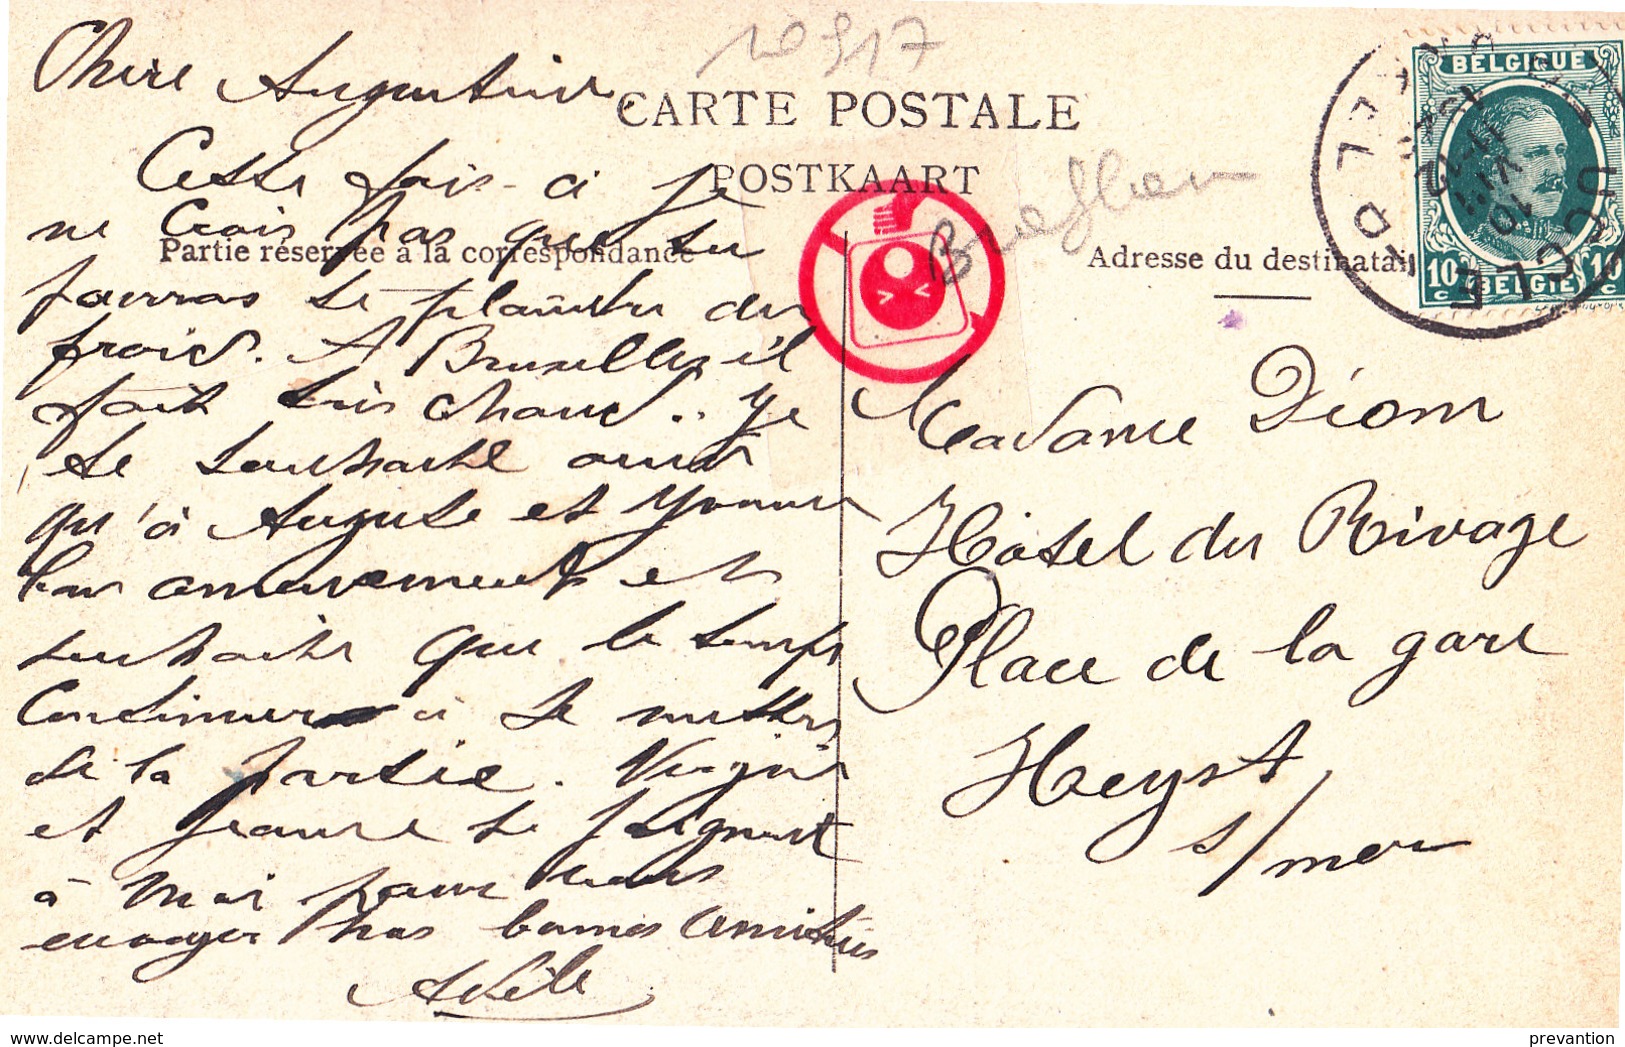 10 917
Chère Augustine,
CARTE POSTALE
POSTKAART
Partie réservée à la correspondance
Adresse du destinatai
Cette fois-ci je
ne crois pas que tu
pourras te plaindre du
froid. A Bruxelles il
fait très chaud. Je
te souhaite ainsi
qu'à Auguste et Yvonne
bon amusement et
souhaite que le temps
continuera à se mettre
de la partie.
et Jeanne se joignent
à moi pour vous
envoyer nos bonnes amitiés
Adèle
Madame Diom
Hôtel du Rivage
Place de la gare
Heyst
s/mer
BELGIQUE
10 c BELGIË 10 c
UCCLE
UKKEL
delcampe.net
prevantion